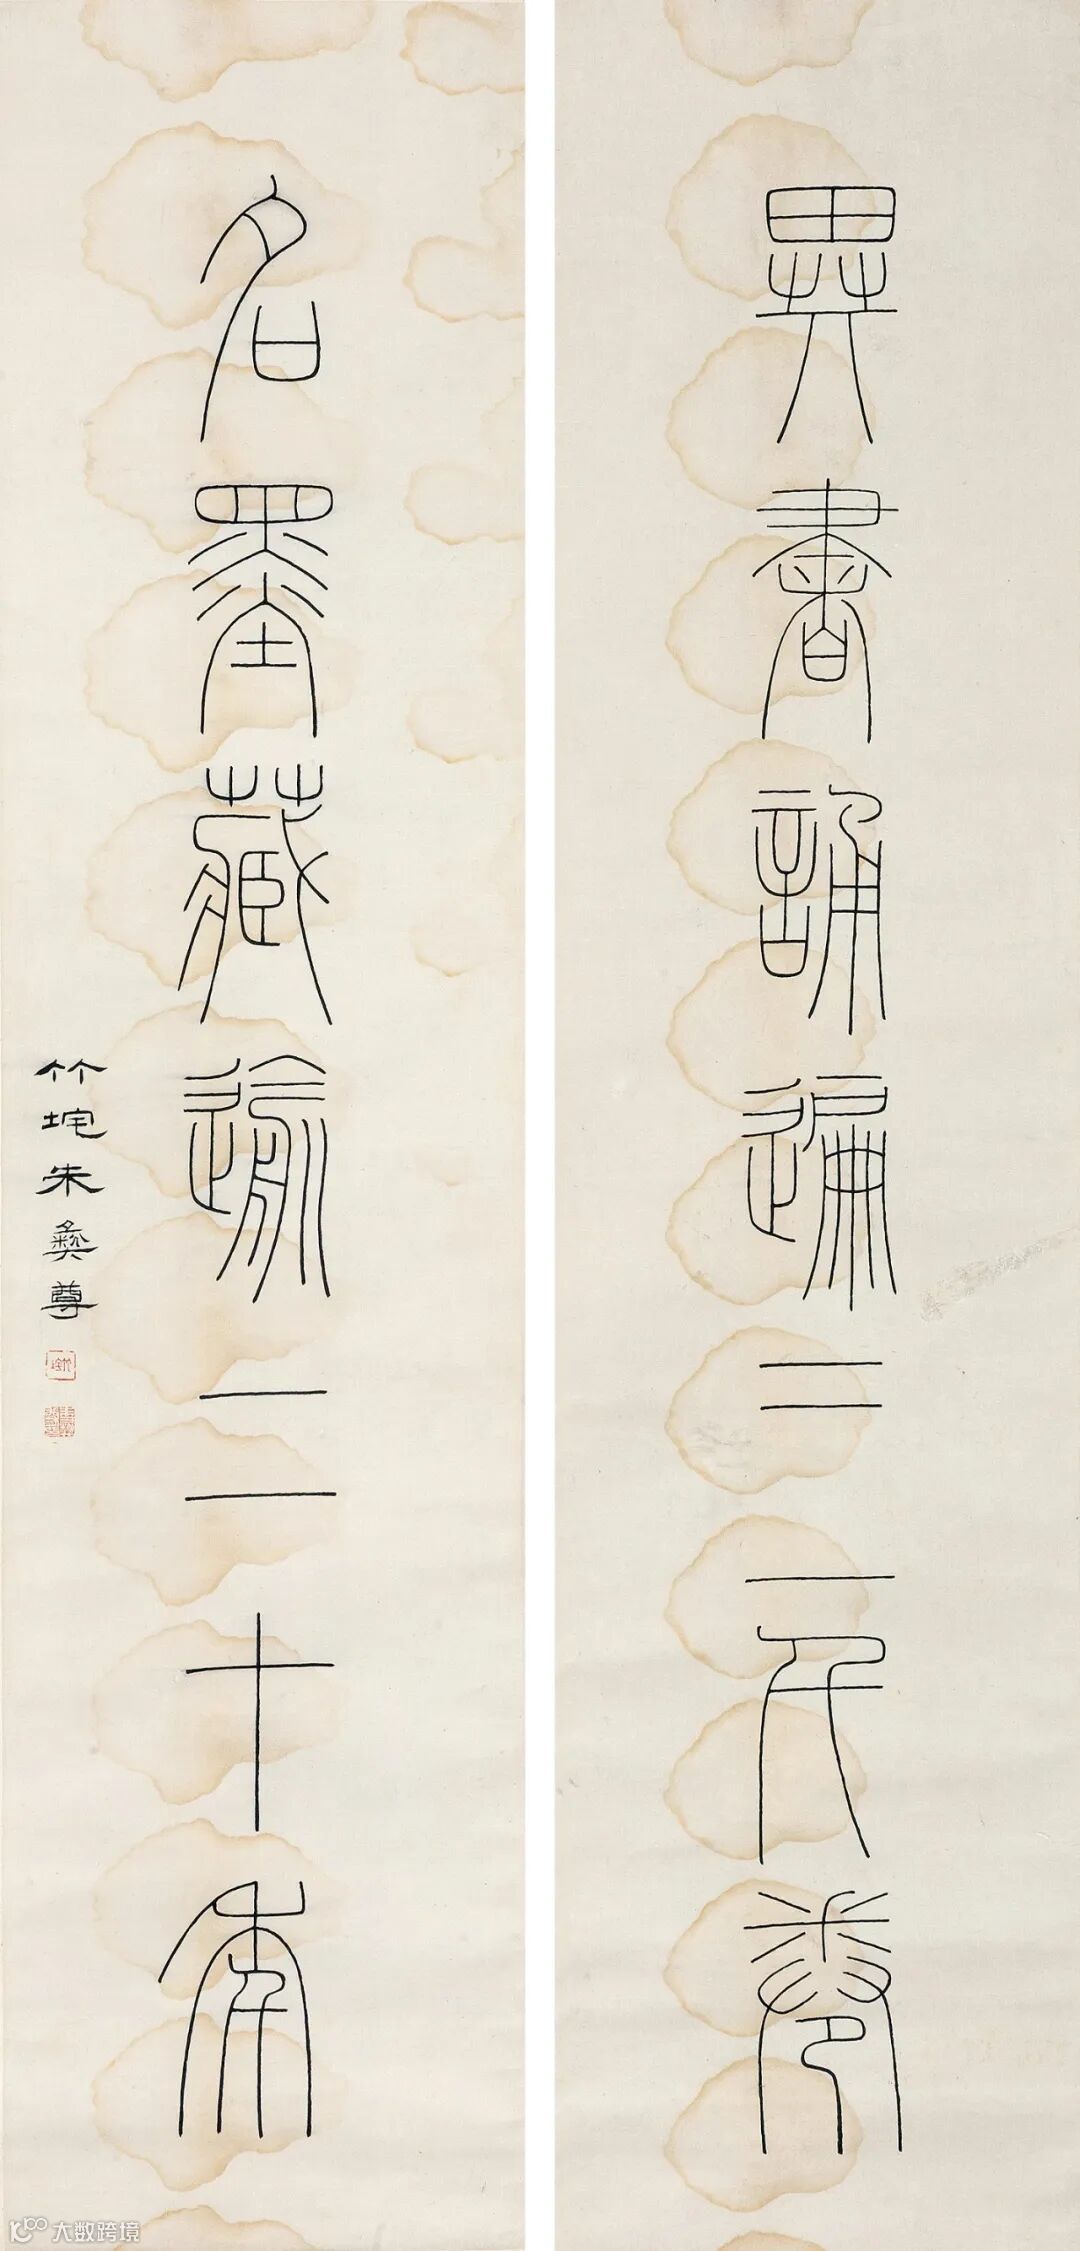 異書誦遍三千卷
名墨藏逾二十年
竹垞朱彝尊
大数跨境